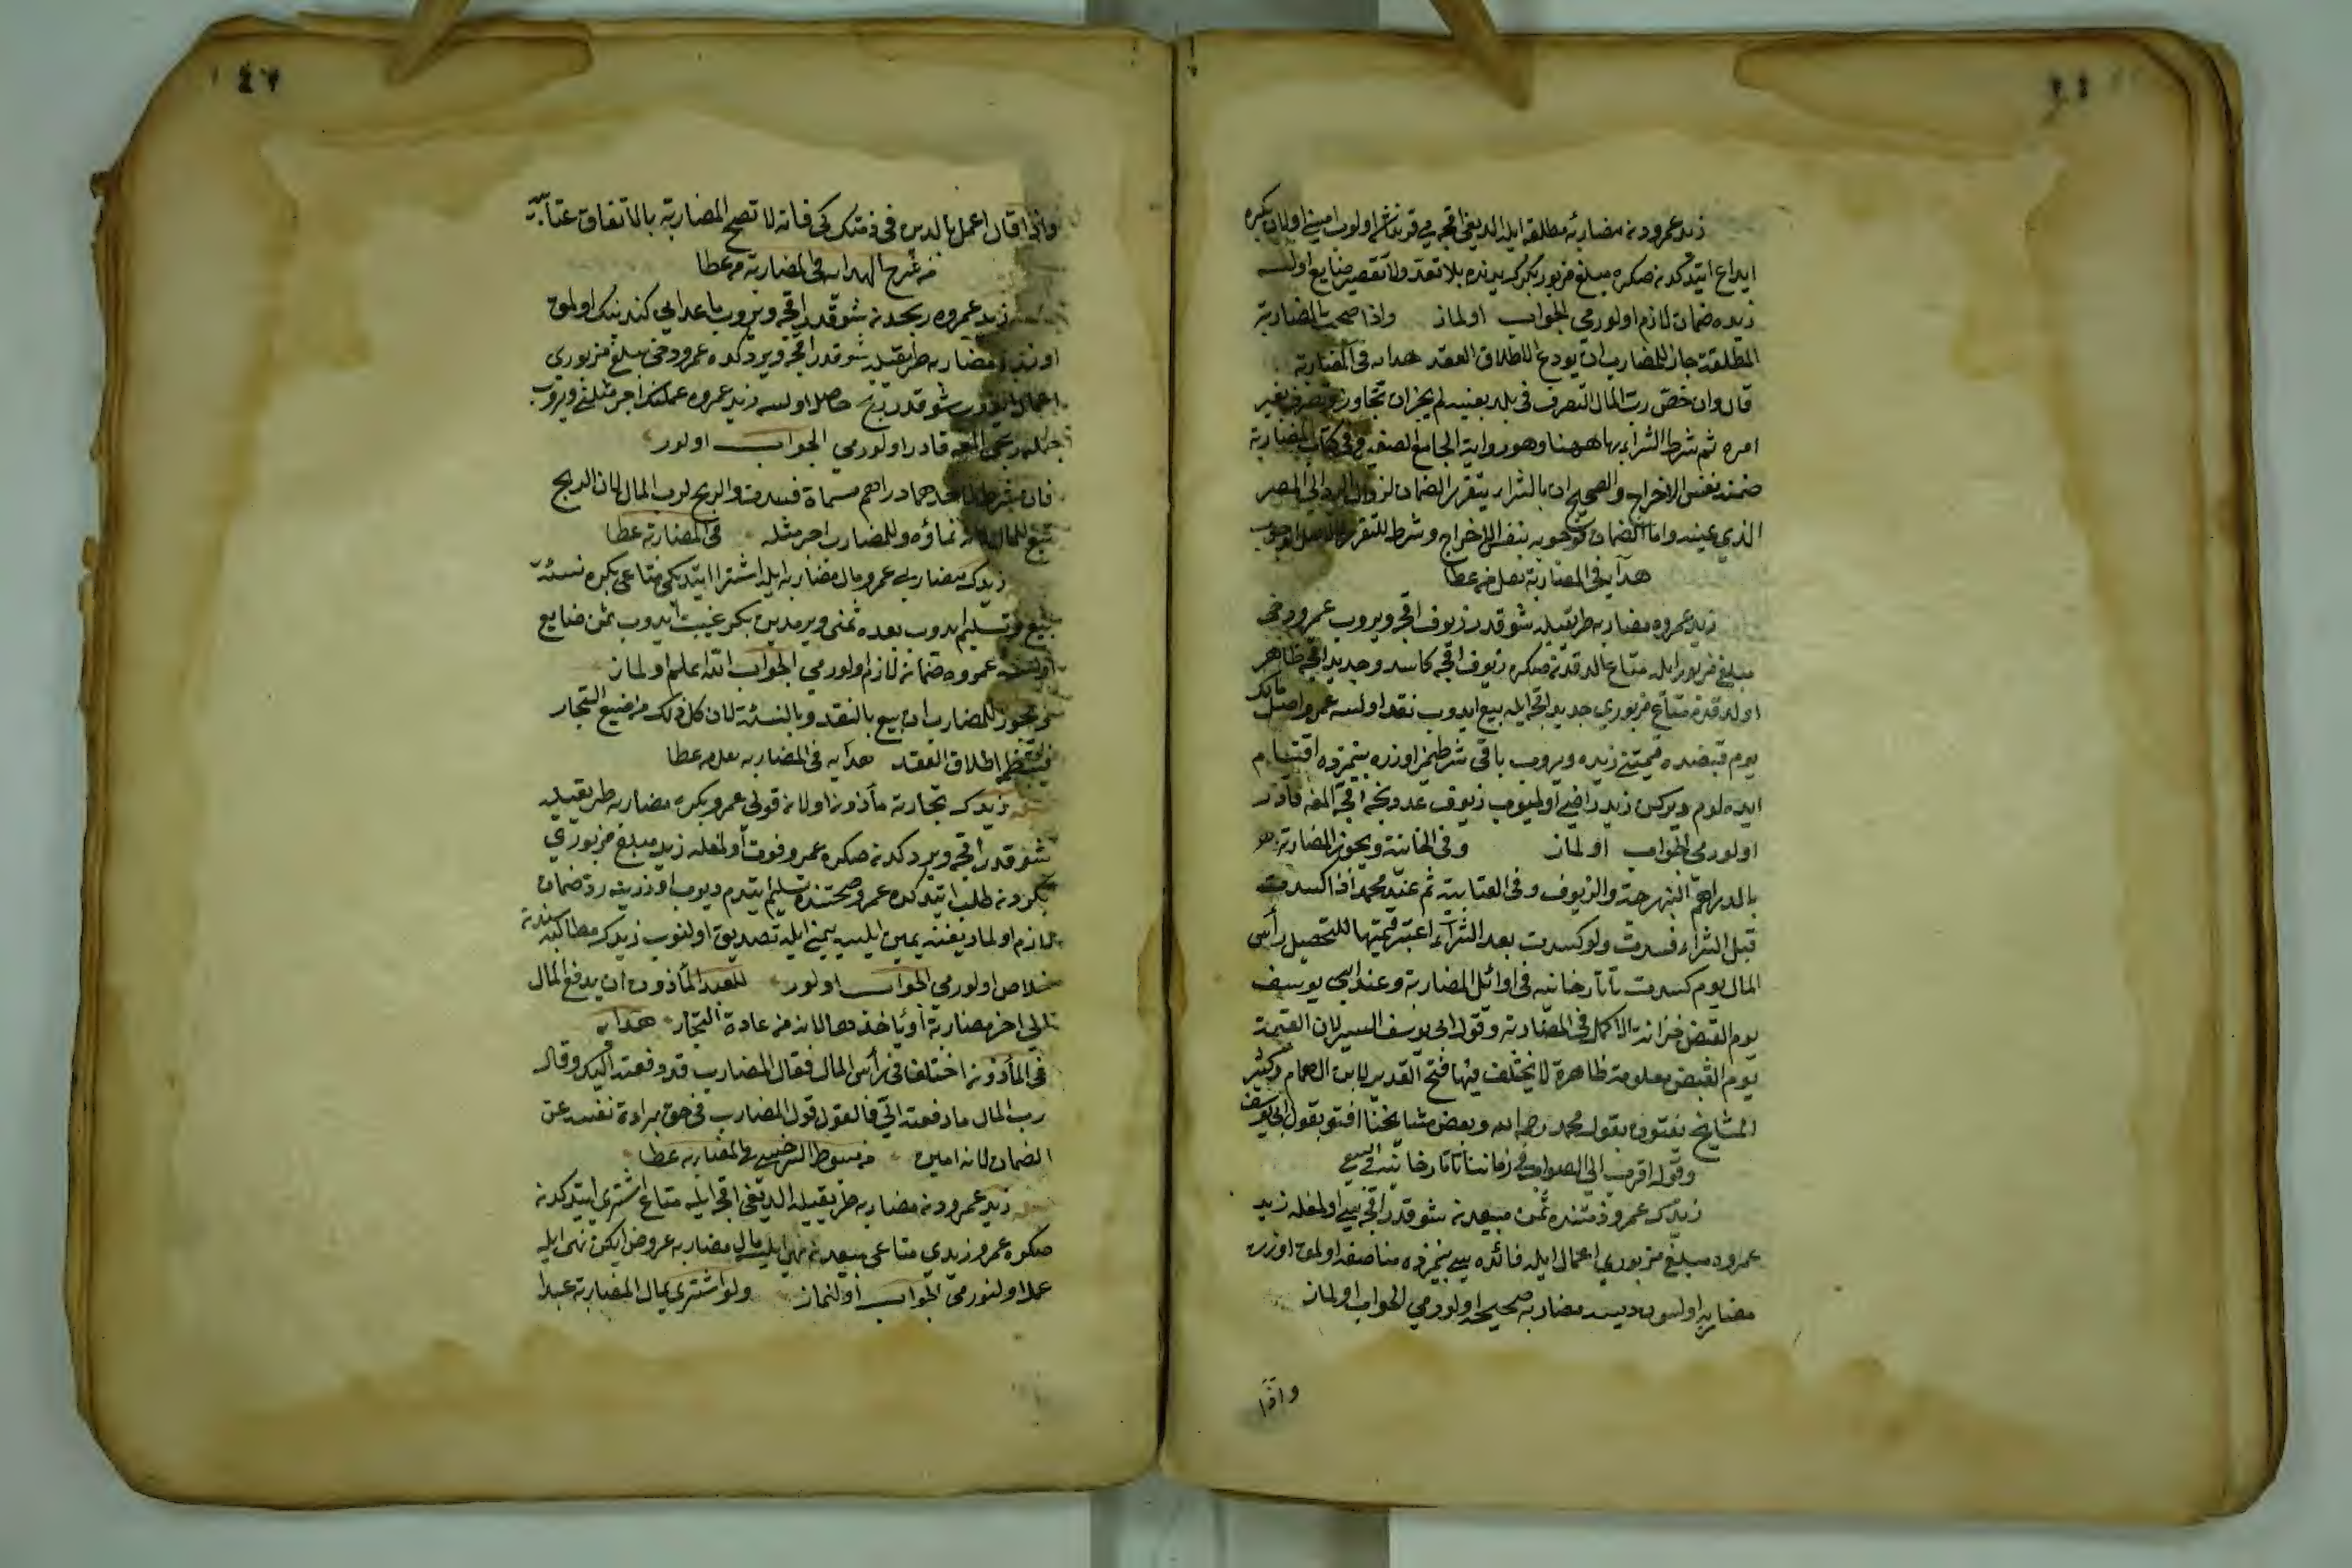 زيد عمرودن مضاربهٔ مطلقه ايله الديغى اقچه يى قرنداشى اولوب امينى اولان بكره
ايداع ايتدكدنصكره مبلغ مزبور بكرك يدنده بلا تعد ولا تقصير ضايع اولسه
زيده ضمان لازم اولورمى الجواب اولماز واذا صحت المضاربة
المطلقة جاز للمضارب ان يودع لاطلاق العقد هدايه فى المضاربة
قال وان خص رب المال التصرف فى بلد بعينه لم يجز ان تجاوز وتصرف بغير
امره ثم شرط الشراء بها ههنا وهو رواية الجامع الصغير وفى كتاب المضاربة
ضمنه بنفس الاخراج والصحيح ان بالشراء يتقرر الضمان لزوال الرد الى المصر
الذي عينه واما الضمان فوجوبه بنفس الاخراج وشرط للتقرر لا لاصل الوجوب
هدايه فى المضاربة نقل من عطا
زيد عمروه مضاربه طريقيله شو قدر زيوف اقچه ويروب عمرو دخى
مبلغ مزبور ايله متاع الدقدنصكره زيوف اقچه كاسد وجديد اقچه ظاهر
اولدقده متاع مزبوري جديد اقچه ايله بيع ايدوب نقد اولسه عمرو اصل مالك
يوم قبضنده قيمتنى زيده ويروب باقى شرطمز اوزره بينمزده اقتسام
ايده لوم ديركن زيد راضى اولميوب زيوف عددنجه اقچه المغه قادر
اولورمى الجواب اولماز وفى الخانية ويجوز المضاربة
بالدراهم النبهرجة والزيوف وفى العتابية ثم عند محمد اذا كسدت
قبل الشراء فسدت ولو كسدت بعد الشراء اعتبر قيمتها للتحصيل رأس
المال يوم كسدت تاتارخانيه فى اوائل المضاربة وعند ابى يوسف
يوم القبض خزانة الاكمل فى المضاربة وقول ابى يوسف اليسر لان القيمة
يوم القبض معلومة ظاهرة لا يختلف فيها فتح القدير لابن الهمام وكثير
المشايخ يفتون بقول محمد رحمه الله وبعض مشايخنا افتو بقول ابى يوسف
وقوله اقرب الى الصواب فى زماننا تاتارخانيه فى البيع
زيدك عمرو ذمتنده ثمن مبيعدن شو قدر اقچه سى اولمغله زيد
عمروه مبلغ مزبوري اعمال ايله فائده سى بينمزده مناصفه اولمق اوزره
مضاربه اولسون ديسه مضاربه صحيحه اولورمى الجواب اولماز
واذا
واذا قال اعمل بالدين فى ذمتك كى فانه لا تصح المضاربة بالاتفاق عتابيه
من شرح الهدايه فى المضاربة من عطا
زيد عمروه ربحدن شو قدر اقچه ويروب ماعداسى كندينك اولمق
اوزره مضاربه طريقيله شو قدر اقچه ويردكده عمرو دخى مبلغ مزبورى
اعمال ايدوب شو قدر ربح حاصل اولسه زيد عمروه عملنك اجر مثلنى ويروب
جمله ربحى المغه قادر اولورمى الجواب اولور
فان شرط لاحدهما دراهم مسماة فسدت والربح لرب المال لان الربح
تبع للمال لانه نماؤه وللمضارب اجر مثله فى المضاربة عطا
زيدك مضاربى عمرو مال مضاربه ايله اشترا ايتديكى متاعى بكره نسئة
بيع وتسليم ايدوب بعده ثمنى ويرمدين بكر غيبت ايدوب ثمن ضايع
اولسه عمروه ضمان لازم اولورمى الجواب الله اعلم اولماز
يجوز للمضارب ان يبيع بالنقد وبالنسئة لان كل ذلك من صنيع التجار
فينتظم اطلاق العقد هدايه فى المضاربه نقل من عطا
زيدك تجارته مأذون اولان قولى عمرو بكره مضاربه طريقيله
شو قدر اقچه ويردكدنصكره عمرو فوت اولمغله زيد مبلغ مزبوري
بكردن طلب ايتدكده عمرو صحتنده تسليم ايتدم ديوب اوزرينه رد ضمان
لازم اولماديغنه يمين ايليسه يمينى ايله تصديق اولنوب زيدك مطالبه سندن
خلاص اولورمى الجواب اولور للعبد المأذون ان يدفع المال
الى اخر مضاربة او يأخذها لانه من عادة التجار هدايه
فى المأذونه اختلفا فى رأس المال فقال المضارب قد دفعته اليك وقال
رب المال ما دفعته الي فالقول قول المضارب فى حق براءة نفسه عن
الضمان لانه امين من مبسوط السرخسى فى المضاربه عطا
زيد عمرودن مضاربه طريقيله الديغى اقچه ايله متاع اشترى ايتدكدن
صكره عمرو زيدي متاعى بيعدن نهى ايليسه مال مضاربه عروض ايكن نهى ايله
عملا اولنورمى الجواب اولنماز ولو اشترى بمال المضاربة عبدا